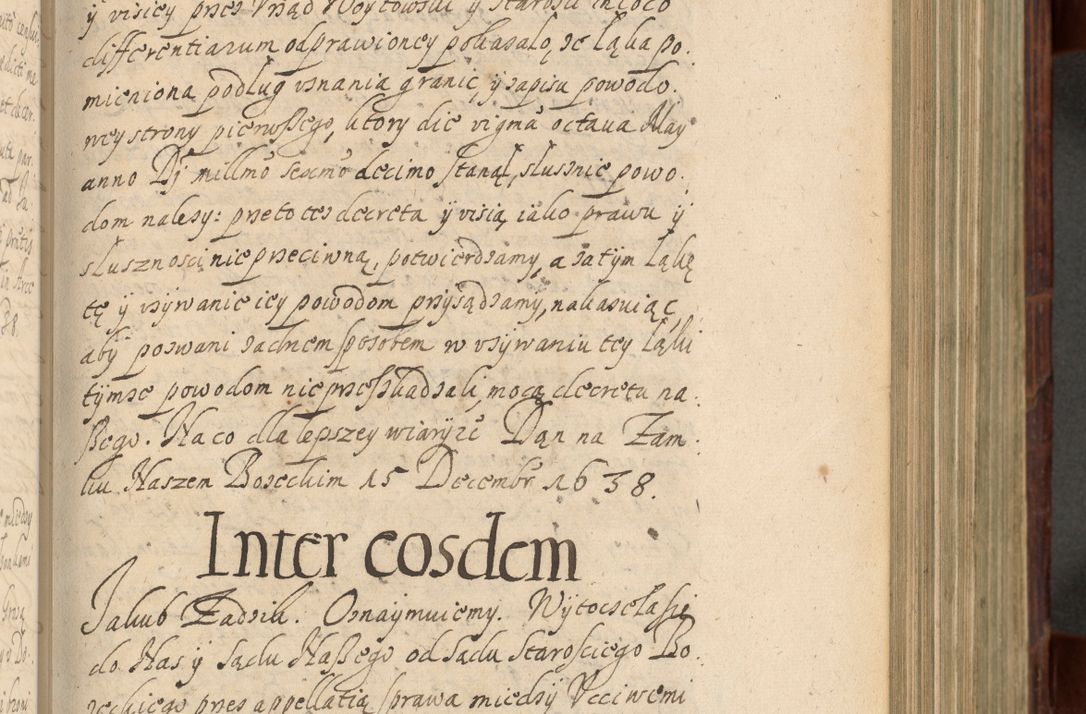 ÿ visiey przez Vrząd Woytowski ÿ Starosci in loco
differentiarum odprawioney pokazało, że łąka po.
mieniona podług vznania granic, ÿ zapisu powodo.
wey strony pierwszego, ktory die vigma octaua May
anno Dj millmo sexcmo decimo stanął, słusznie powo.
dom nalezy: przeto tez decreta ÿ visią, iako prawu ÿ
słusznosci nieprzeciwną, potwierdzamy, a zatÿm łąkę
tę ÿ vzÿwanie iey powodom przÿsądzamy, nakazuiąc,
abÿ pozwani zadnem sposobem w vzÿwaniu tey łąki
tÿmze powodom nie przeszkadzali, mocą decretu na.
szego. Na co dla lepszey wiarÿ etc Dan na Zam.
ku Naszem Bozeckim 15 Decembr 1638.
Inter eosdem
Jakub Zadzik. Oznaÿmuiemy. Wÿtoczeła się
do Nas ÿ sądu Naszego od sądu Starosciego Bo.
zeckiego przez appellatią sprawa miedzÿ Vcciwemi